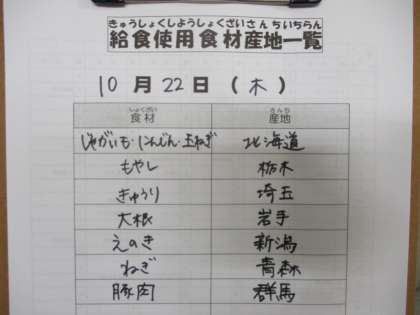 きゅうしょくしようしょくざいさんちいちらん
給食使用食材産地一覧
10月22日(木)
しょくざい さんち
食材 産地
じゃがいも・にんじん・玉ねぎ 北海道
もやし 栃木
きゅうり 埼玉
大根 岩手
えのき 新潟
ねぎ 青森
豚肉 群馬